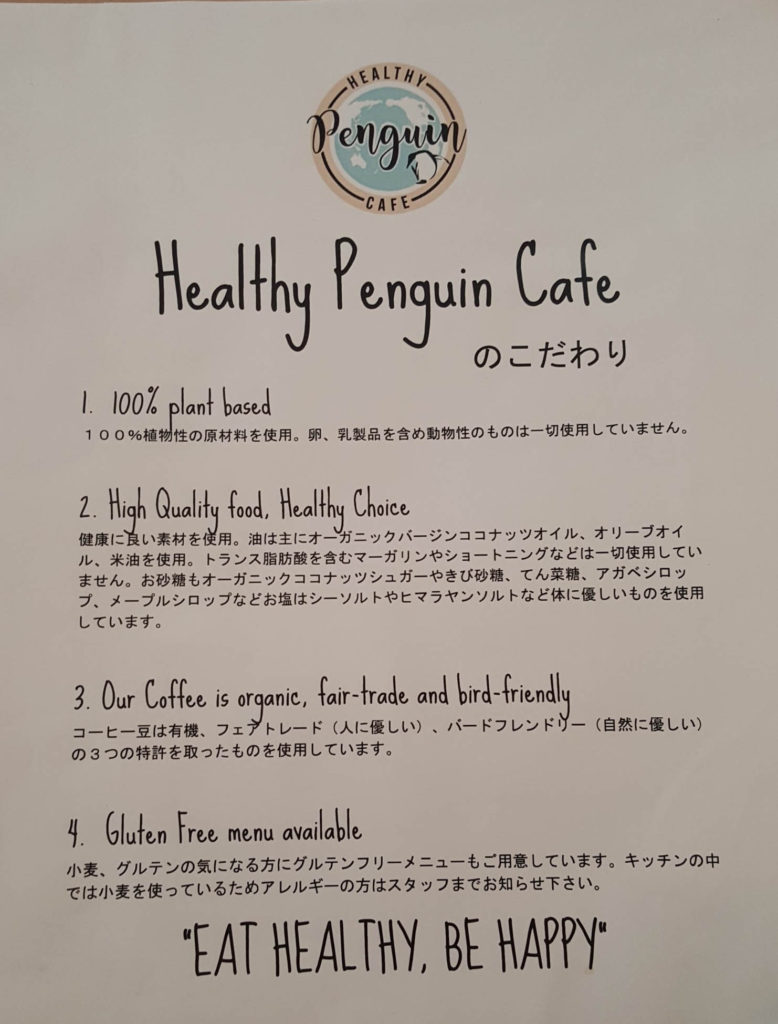 HEALTHY
Penguin
CAFE
Healthy Penguin Cafe
のこだわり
1. 100% plant based
１００%植物性の原材料を使用。卵、乳製品を含め動物性のものは一切使用していません。
2. High Quality food, Healthy Choice
健康に良い素材を使用。油は主にオーガニックバージンココナッツオイル、オリーブオイ
ル、米油を使用。トランス脂肪酸を含むマーガリンやショートニングなどは一切使用してい
ません。お砂糖もオーガニックココナッツシュガーやきび砂糖、てん菜糖、アガベシロッ
プ、メープルシロップなどお塩はシーソルトやヒマラヤンソルトなど体に優しいものを使用
しています。
3. Our Coffee is organic, fair-trade and bird-friendly
コーヒー豆は有機、フェアトレード（人に優しい）、バードフレンドリー（自然に優しい）
の３つの特許を取ったものを使用しています。
4. Gluten Free menu available
小麦、グルテンの気になる方にグルテンフリーメニューもご用意しています。キッチンの中
では小麦を使っているためアレルギーの方はスタッフまでお知らせ下さい。
"EAT HEALTHY, BE HAPPY"